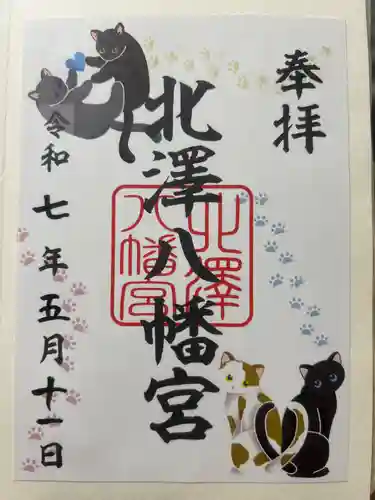 奉拝
北澤八幡宮
北澤
八幡宮
令和七年五月十一日